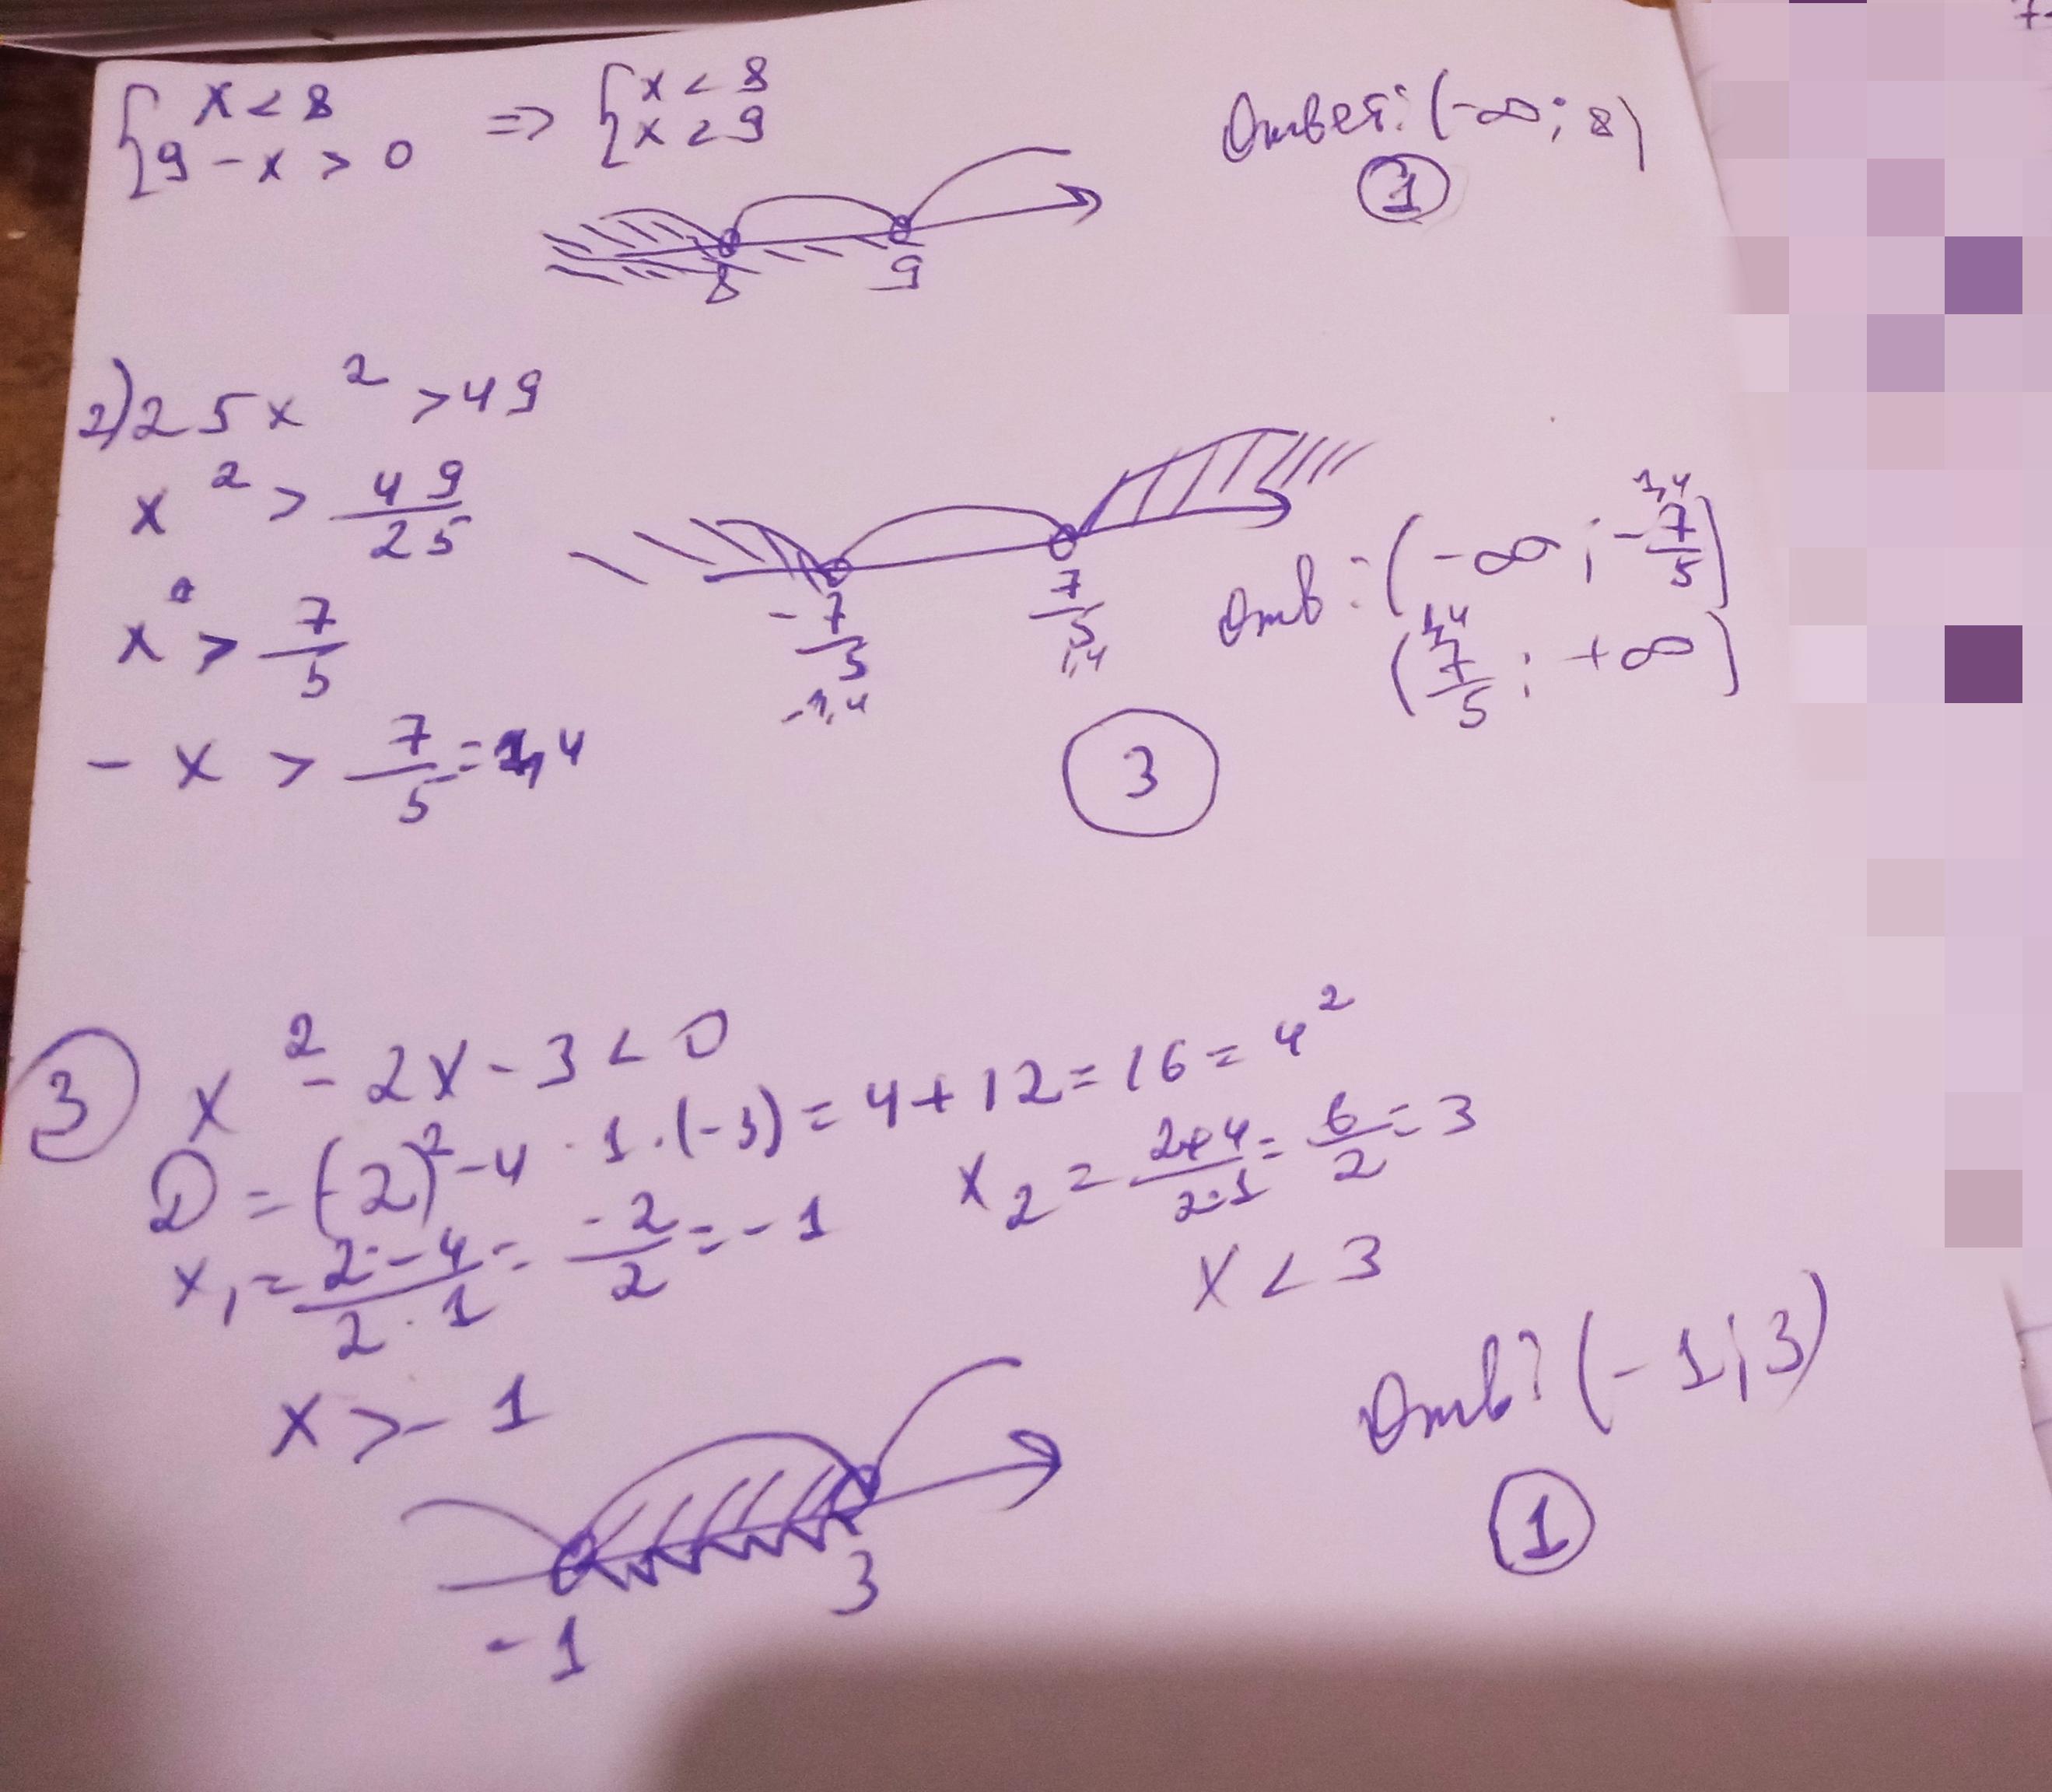 { x < 8
9 - x > 0 => { x < 8
x < 9 Ответ: (-∞; 8)
1
8 9
2) 25x² > 49
x² > 49/25
x > 7/5
- x > 7/5 = 1,4
-7/5 7/5
-1,4 1,4
Отв: (-∞; -7/5) 1,4
(7/5; +∞) 1,4
3
3 x² - 2x - 3 < 0
D = (-2)² - 4 · 1 · (-3) = 4 + 12 = 16 = 4²
x₁ = 2 - 4 / 2 · 1 = -2/2 = -1 x₂ = 2+4 / 2·1 = 6/2 = 3
x > -1 x < 3
Отв: (-1; 3)
1
-1 3